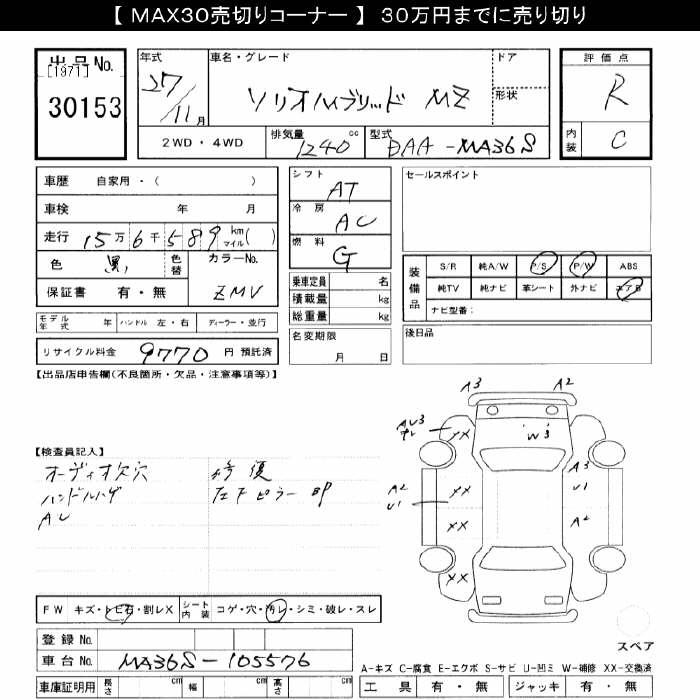 【 MAX30売切りコーナー 】 30万円までに売り切り
出品No.
[1971]
30153
年式
27/11月
車名・グレード
ソリオハイブリッド MZ
ドア
形状
2WD・4WD
排気量 1240 cc
型式 DAA-MA36S
評価点
R
内装 C
車歴 自家用・( )
車検 年 月
走行 15万6千589 km マイル( )
色 黒 色替 カラーNo.
保証書 有・無 ZMV
モデル年式 年 ハンドル 左・右 ディーラー・並行
リサイクル料金 9770 円 預託済
シフト AT
冷房 AC
燃料 G
乗車定員 名
積載量 kg
総重量 kg
名変期限
月 日
セールスポイント
装備品
S/R 純A/W P/S P/W ABS
純TV 純ナビ 革シート 外ナビ エアB
ナビ型番:
後日品
【出品店申告欄(不良箇所・欠品・注意事項等)】
【検査員記入】
オーディオ欠穴
ハンドルハゲ
AU
修復
左Fピラー BP
A3 A2
AU3
XX
W3
A3
U1
A2
U1
XX
XX
A2
XX
スペア
FW キズ・トビ石・割レX シート内装 コゲ・穴・汚レ・シミ・破レ・スレ
登録No.
車台No. MA36S-105576
車庫証明用 長さ cm 幅 cm 高さ cm
A-キズ C-腐食 E-エクボ S-サビ U-凹ミ W-補修 XX-交換済
工具 有・無 ジャッキ 有・無